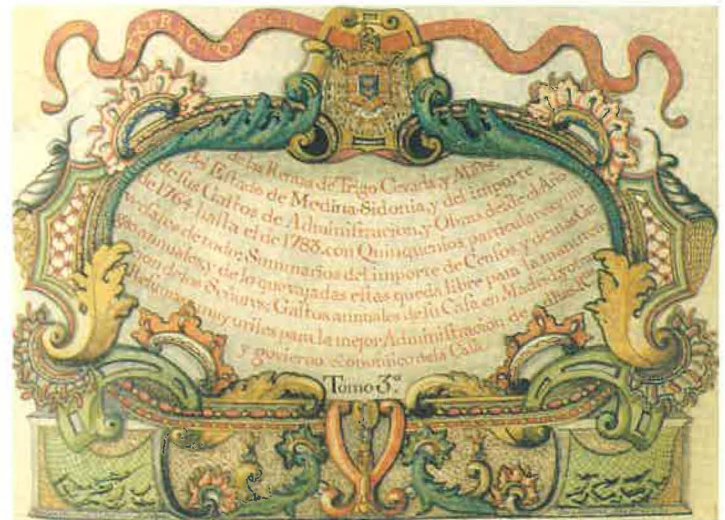 EXTRACTOS POR
de las Rentas de Trigo Cevada, y Maravs.
del Estado de Medina-Sidonia, y del importe
de sus Gastos de Administracion, y Obras desde el Año
de 1764. hasta el de 1783. con Quinquenios particulares, y
de todo; Summarios del importe de Censos, y demas Car
annuales, y de lo que vajadas estas queda libre para la manuten
cion de los Señores; Gastos annuales de su Casa en Madrid, y otras
muy utiles para la mejor Administracion de
y govierno economico de la Casa.
Tomo 3º.